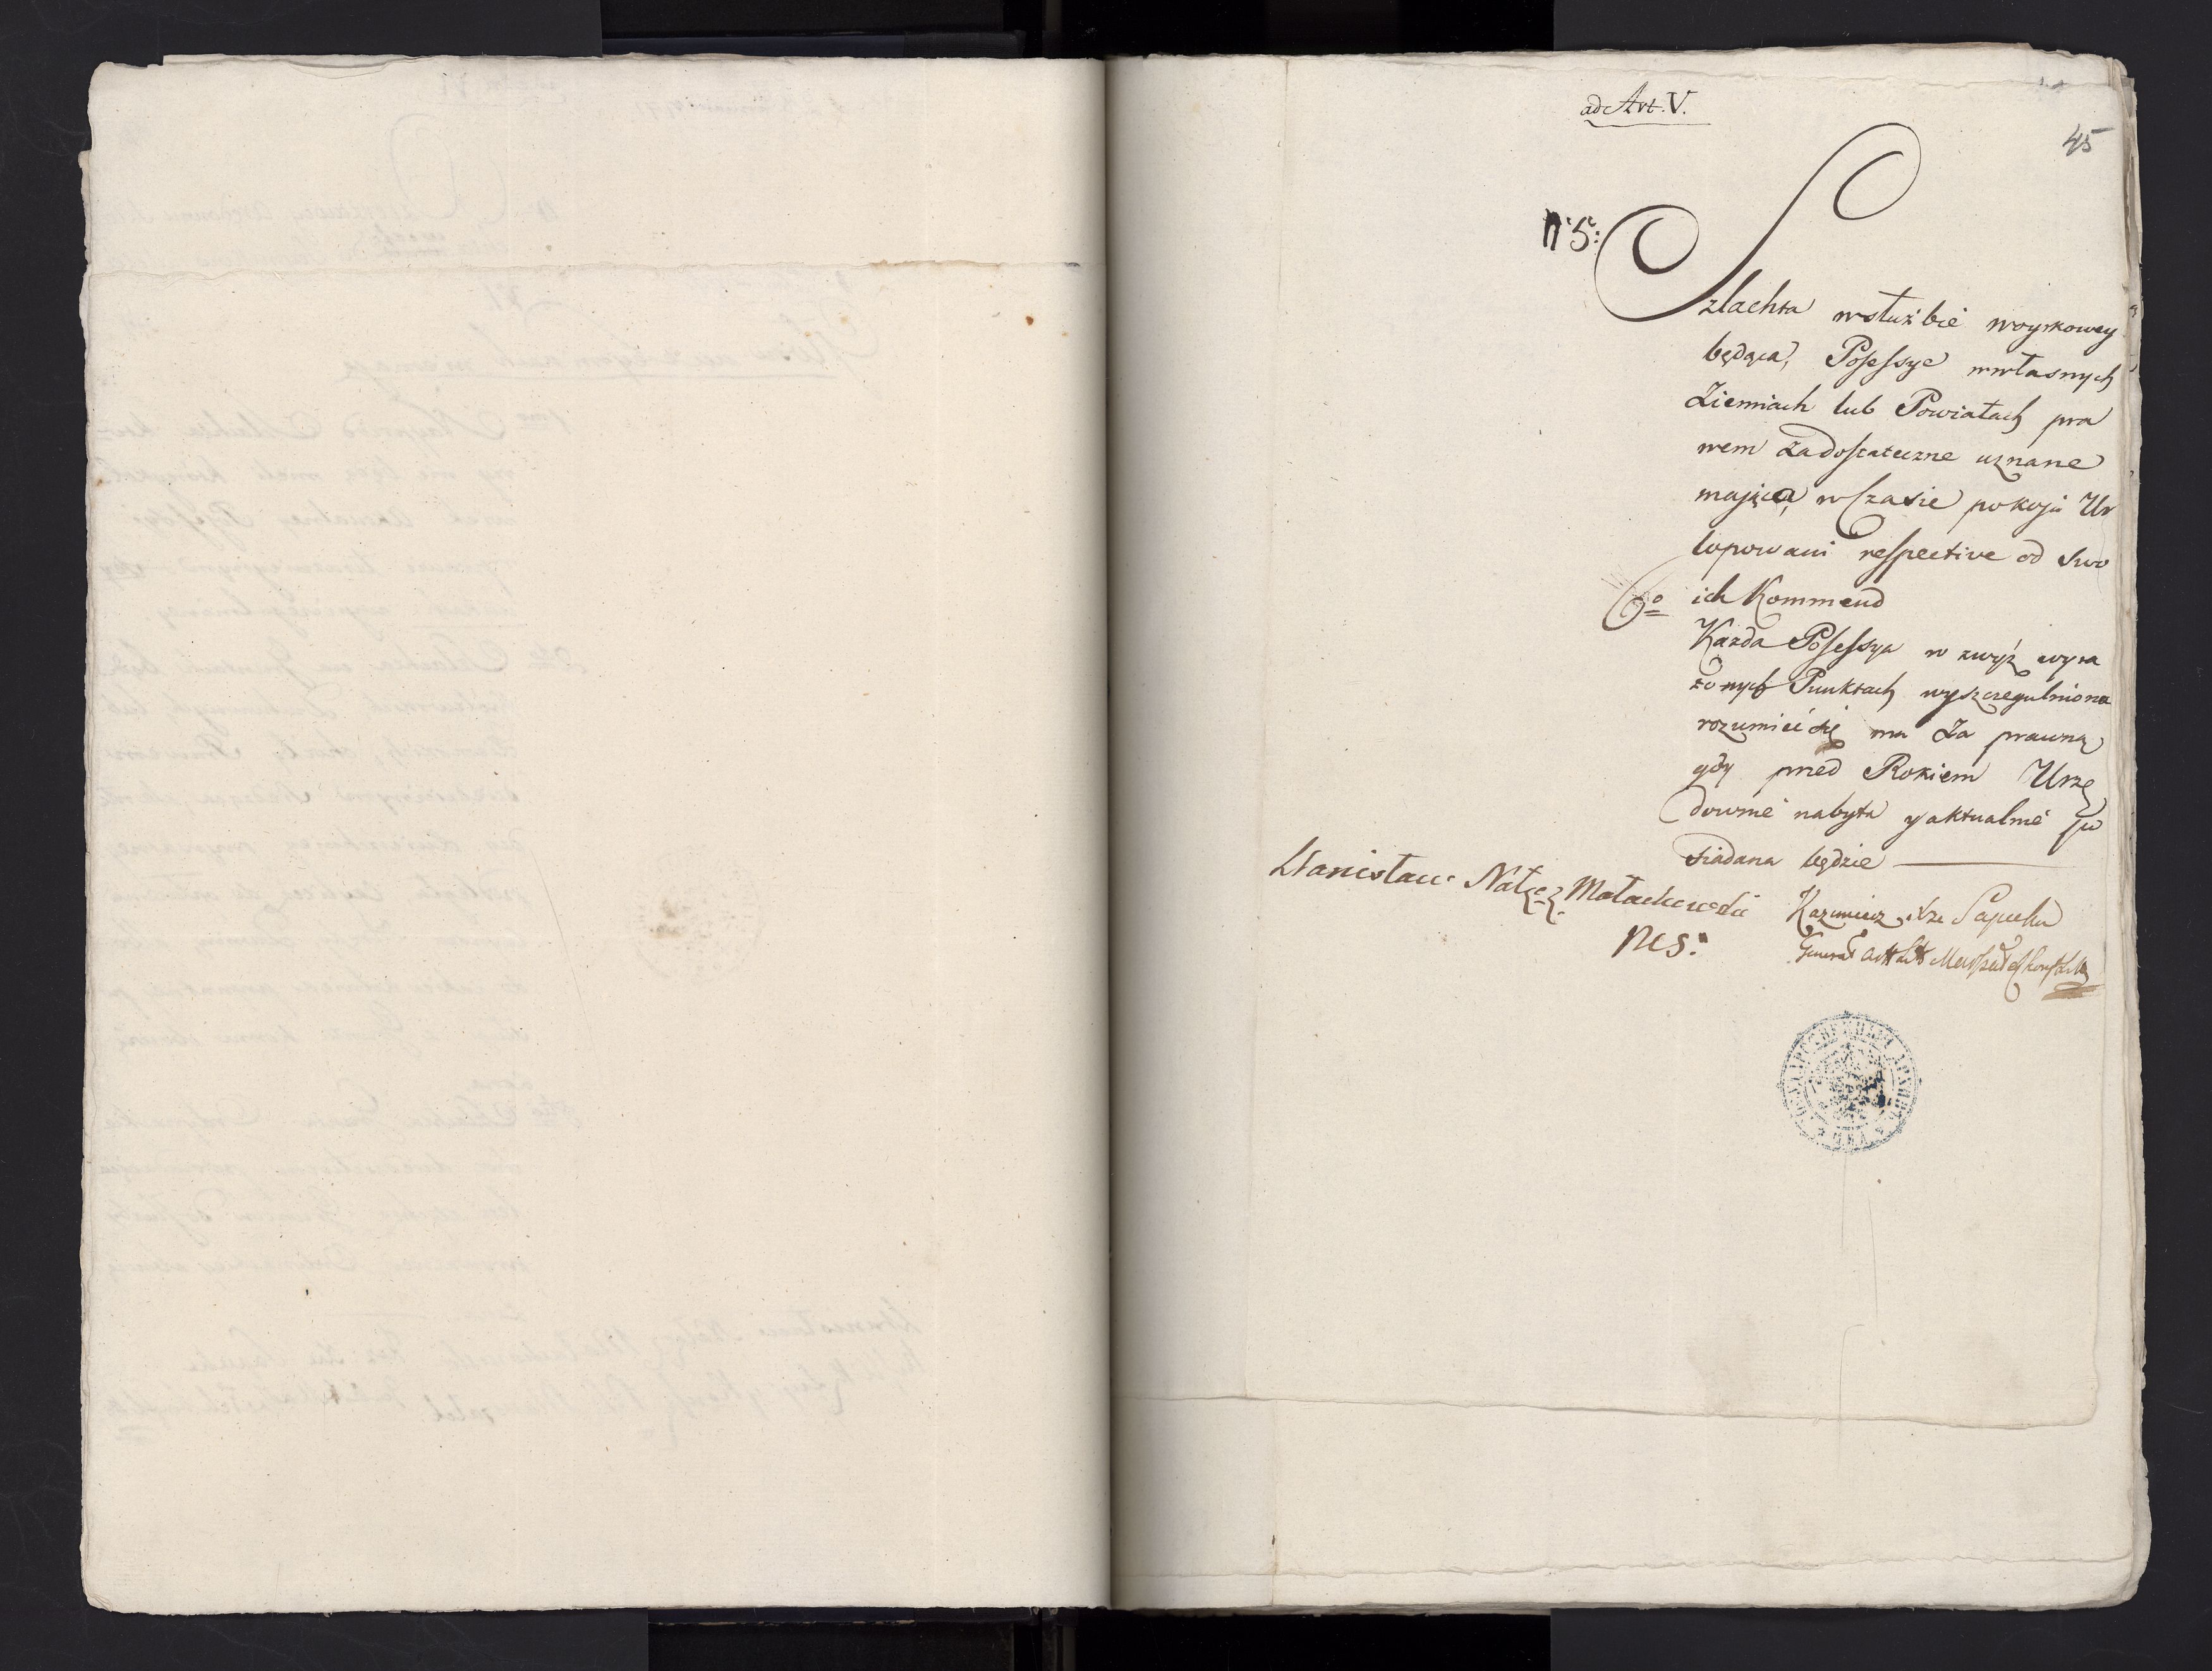 ad Art. V.
45
N 5:
Szlachta w służbie woyskowey
będąca, Possessye w własnych
Ziemiach lub Powiatach pra
wem za dostateczne uznane
mająca w Czasie pokoju Ur
lopowani respective od swo
6º ich Kommend
Kazda Possessya w zwyż wyra
żonych Punktach wyszczegulniona
rozumieć się ma Za prawną
gdy przed Rokiem Urzę
downie nabyta y aktualnie po
siadana będzie
Stanisław Nałęcz Małachowski
Kazimierz Xże Sapieha
Generał Art Lit Marszałek Konf